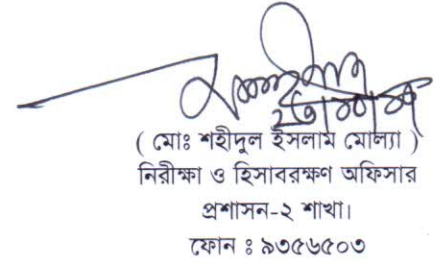 ( মোঃ শহীদুল ইসলাম মোল্যা )
নিরীক্ষা ও হিসাবরক্ষণ অফিসার
প্রশাসন-২ শাখা।
ফোন ঃ ৯৩৫৬৫০৩